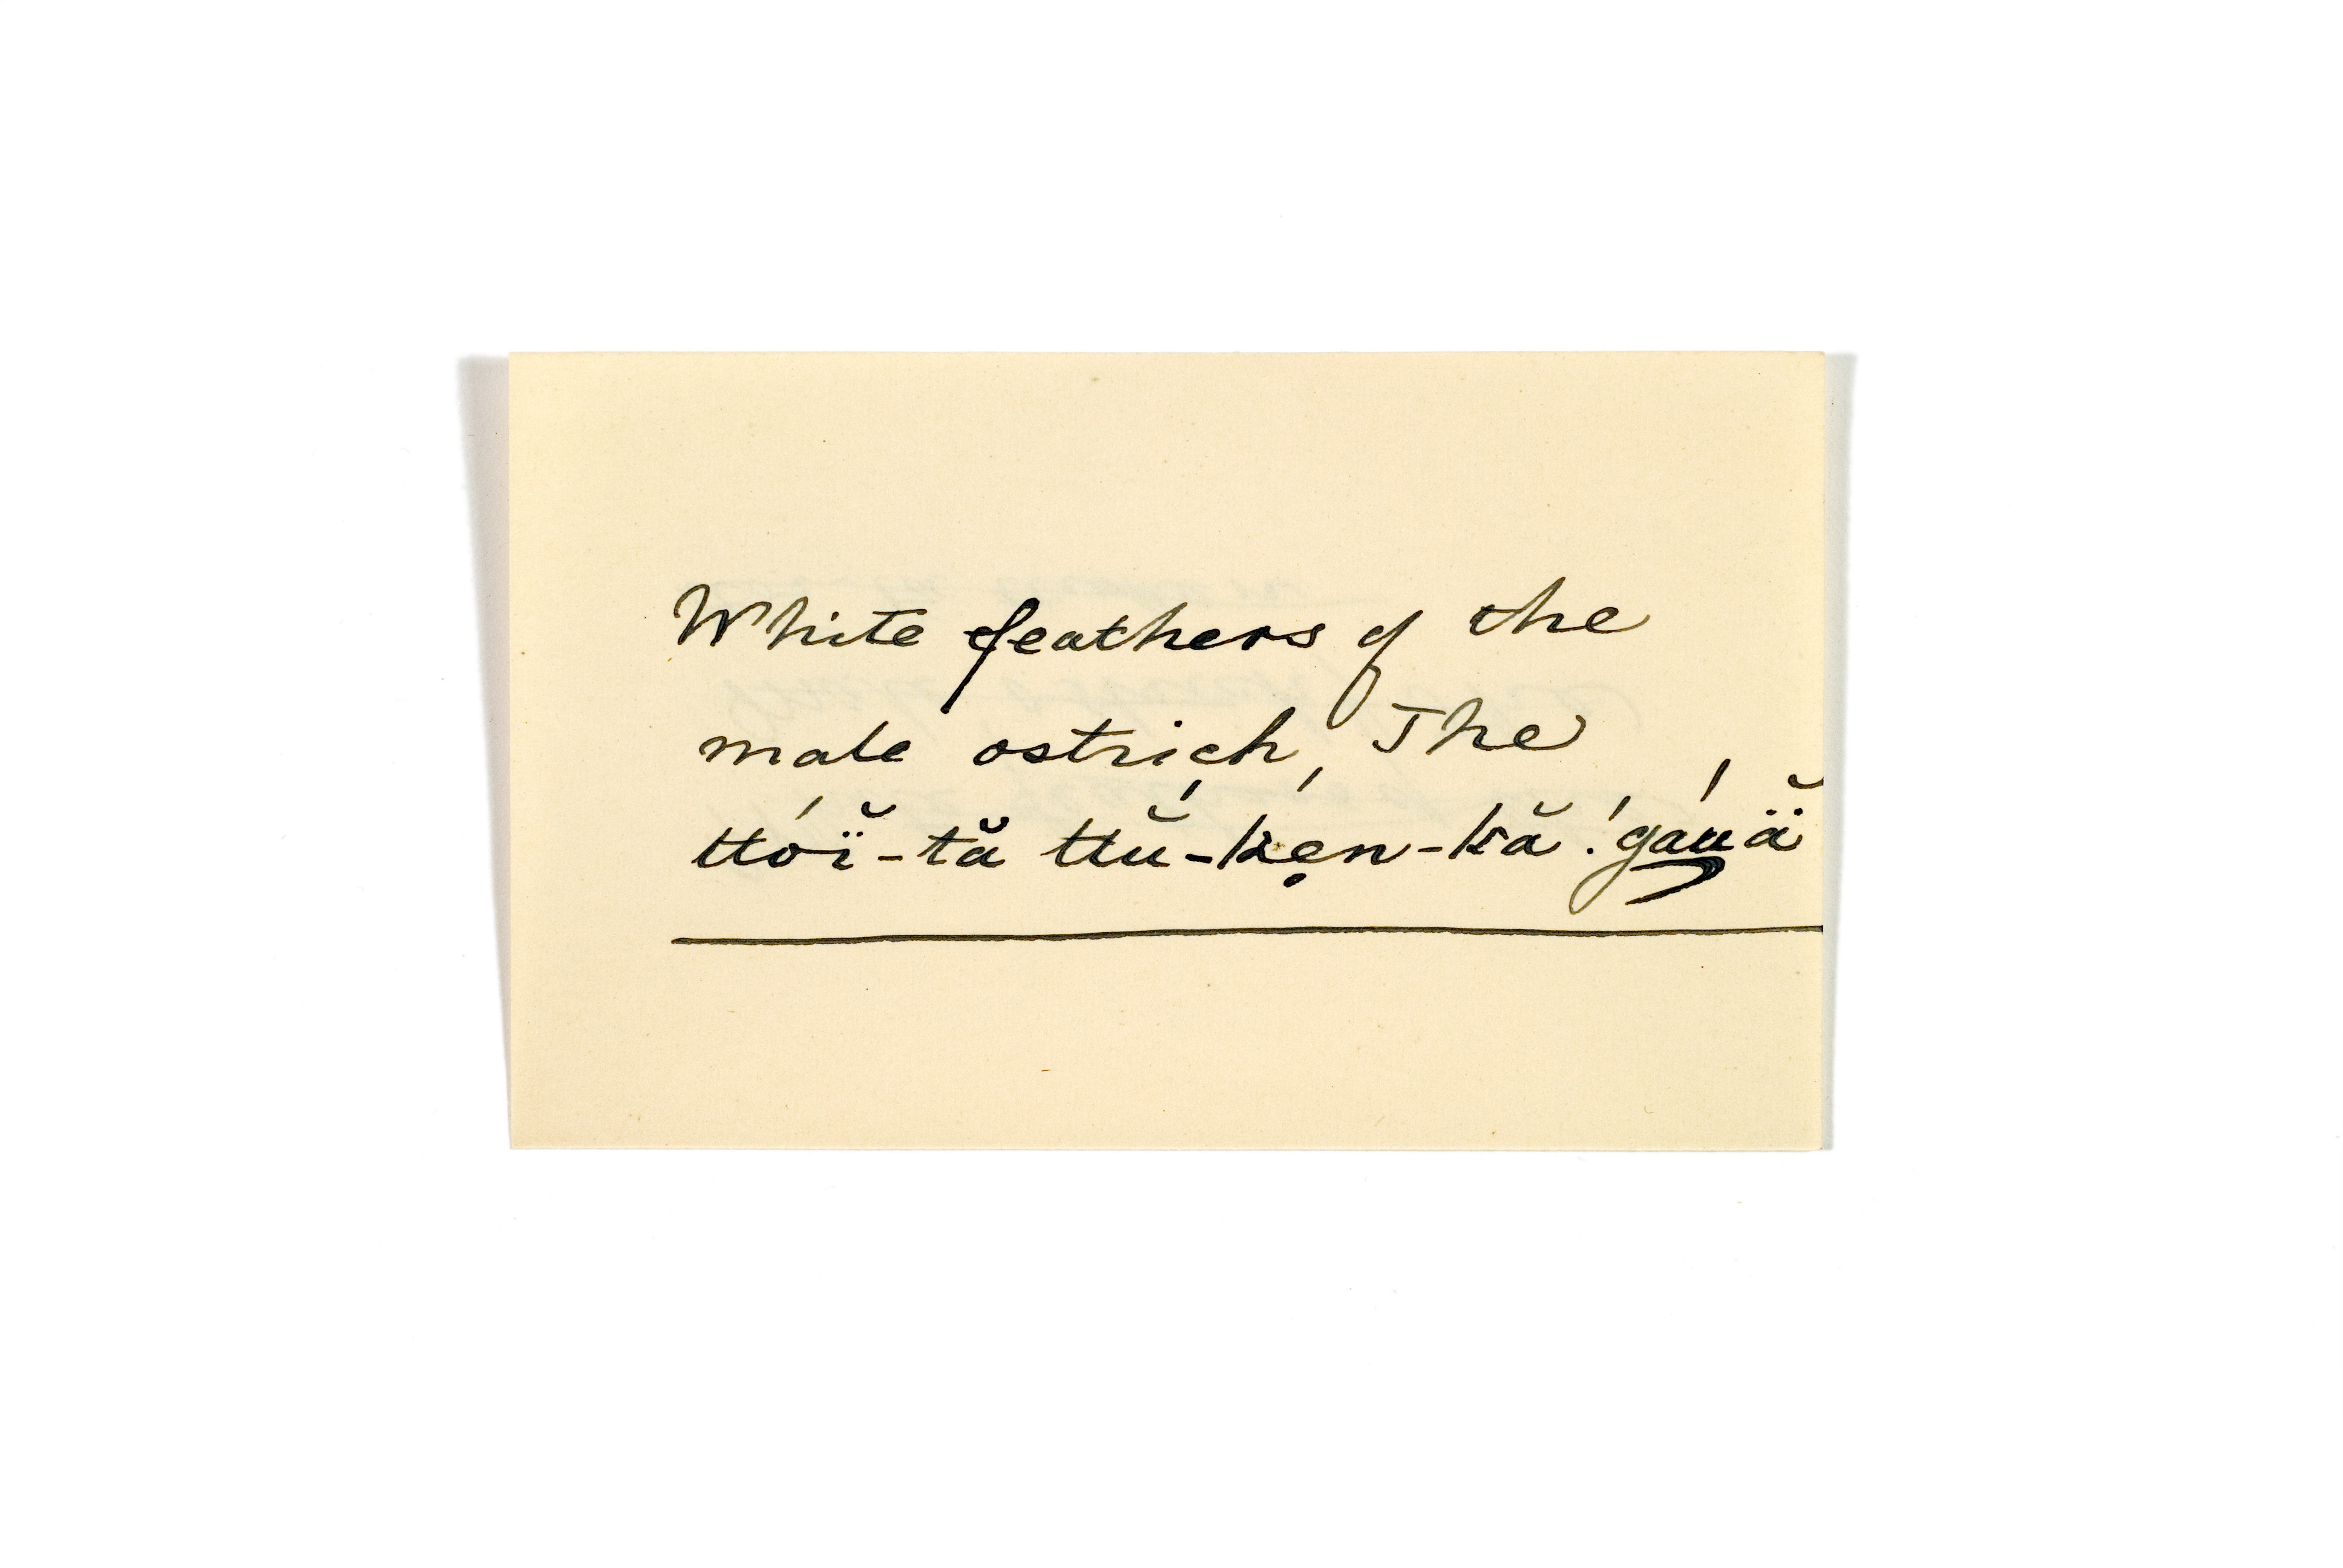 White feathers of the
male ostrich, The
ttóï̆-tă ttŭ́-kẹ́n-kă !gáuä̆